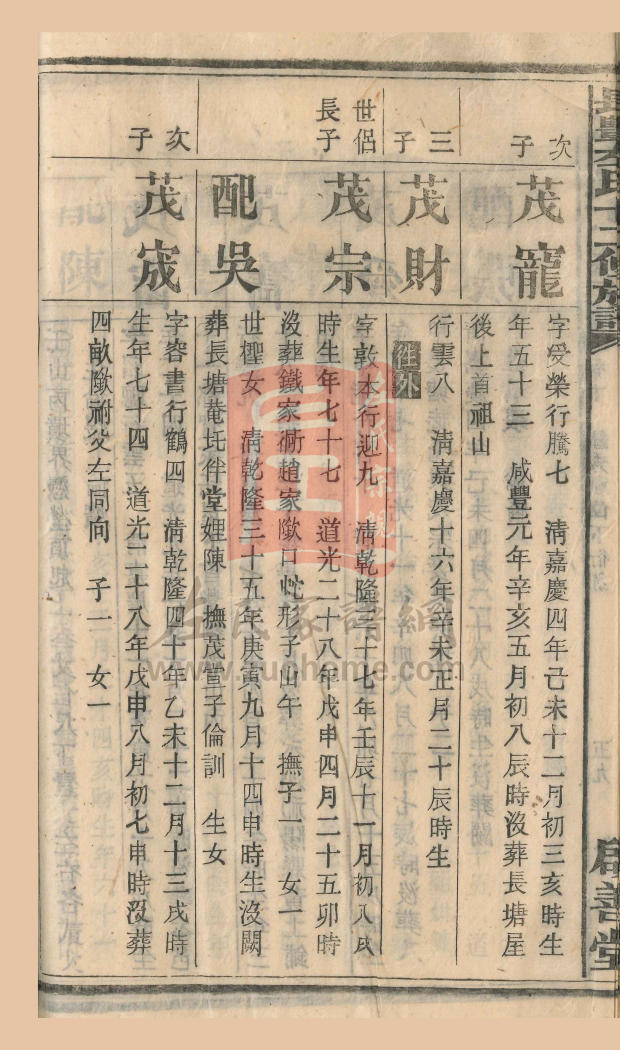 次子
茂寵
字受榮行騰七　清嘉慶四年己未十二月初三亥時生
年五十三　咸豐元年辛亥五月初八辰時沒葬長塘屋
後上首祖山
三子
茂財
行雲八　清嘉慶十六年辛未正月二十辰時生
往外
世侶長子
茂宗
字敦本行迎九　清乾隆三十七年壬辰十一月初八戌
時生年七十七　道光二十八年戊申四月二十五卯時
沒葬鐵家衕趙家歘口虵形子山午　撫子一　女一
配吳
世堅女　清乾隆三十五年庚寅九月十四申時生沒闕
葬長塘菴坵伴堂娌陳　撫茂萱子倫訓　生女
次子
茂宬
字容書行鶴四　清乾隆四十年乙未十二月十三戌時
生年七十四　道光二十八年戊申八月初七申時沒葬
四畝歘祔父左同向　子一　女一
啟善堂
www.zuohome.com